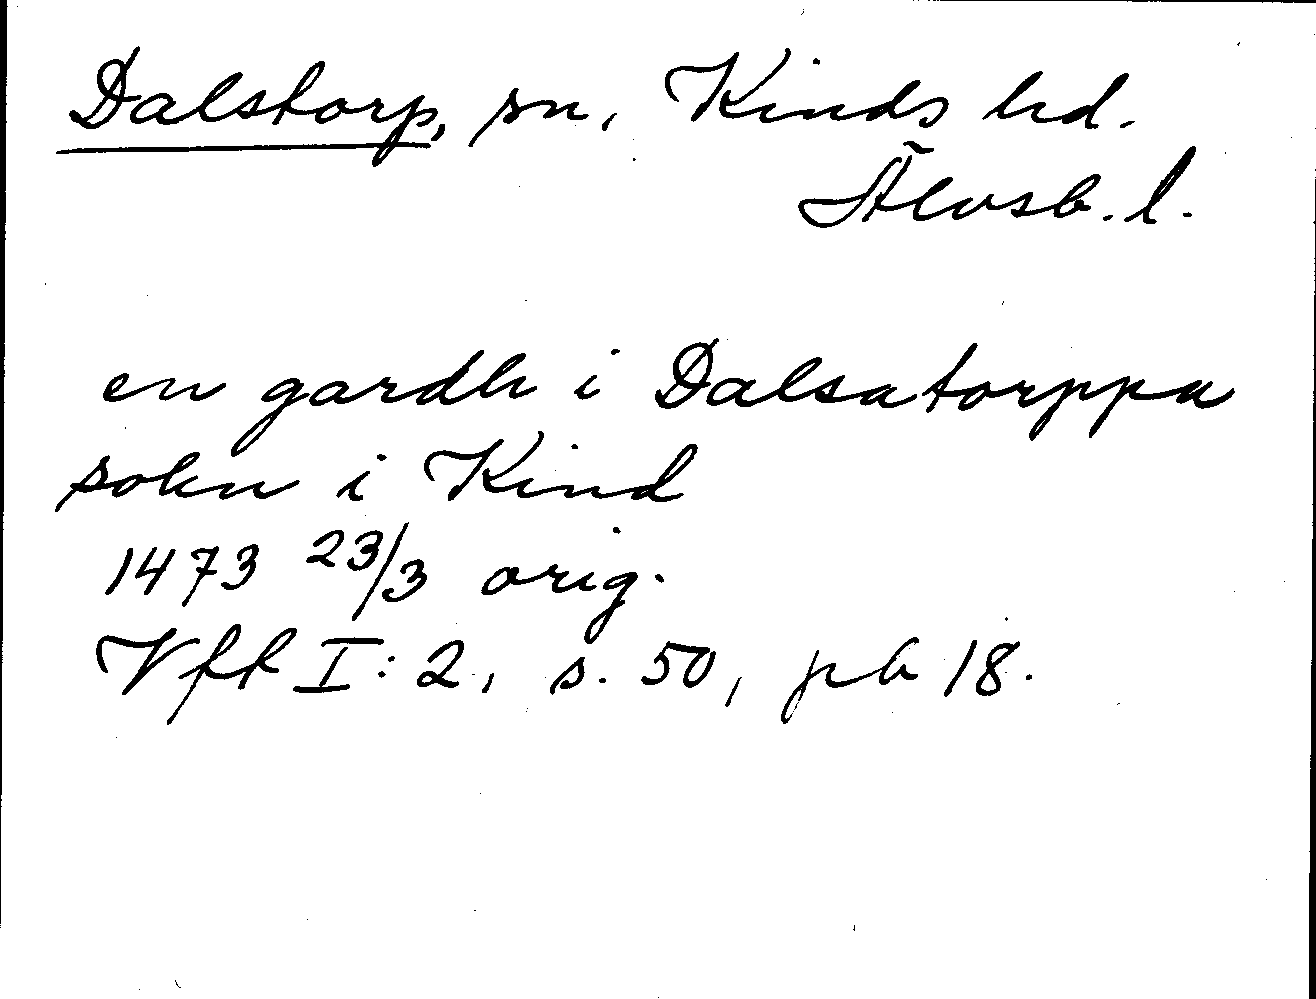 Dalstorp, sn, Kinds hd.
Älvsb. l.
en gardh i Dalsatorppa
sokn i Kind
1473 23/3 orig.
Vff I: 2, s. 50, pb 18.